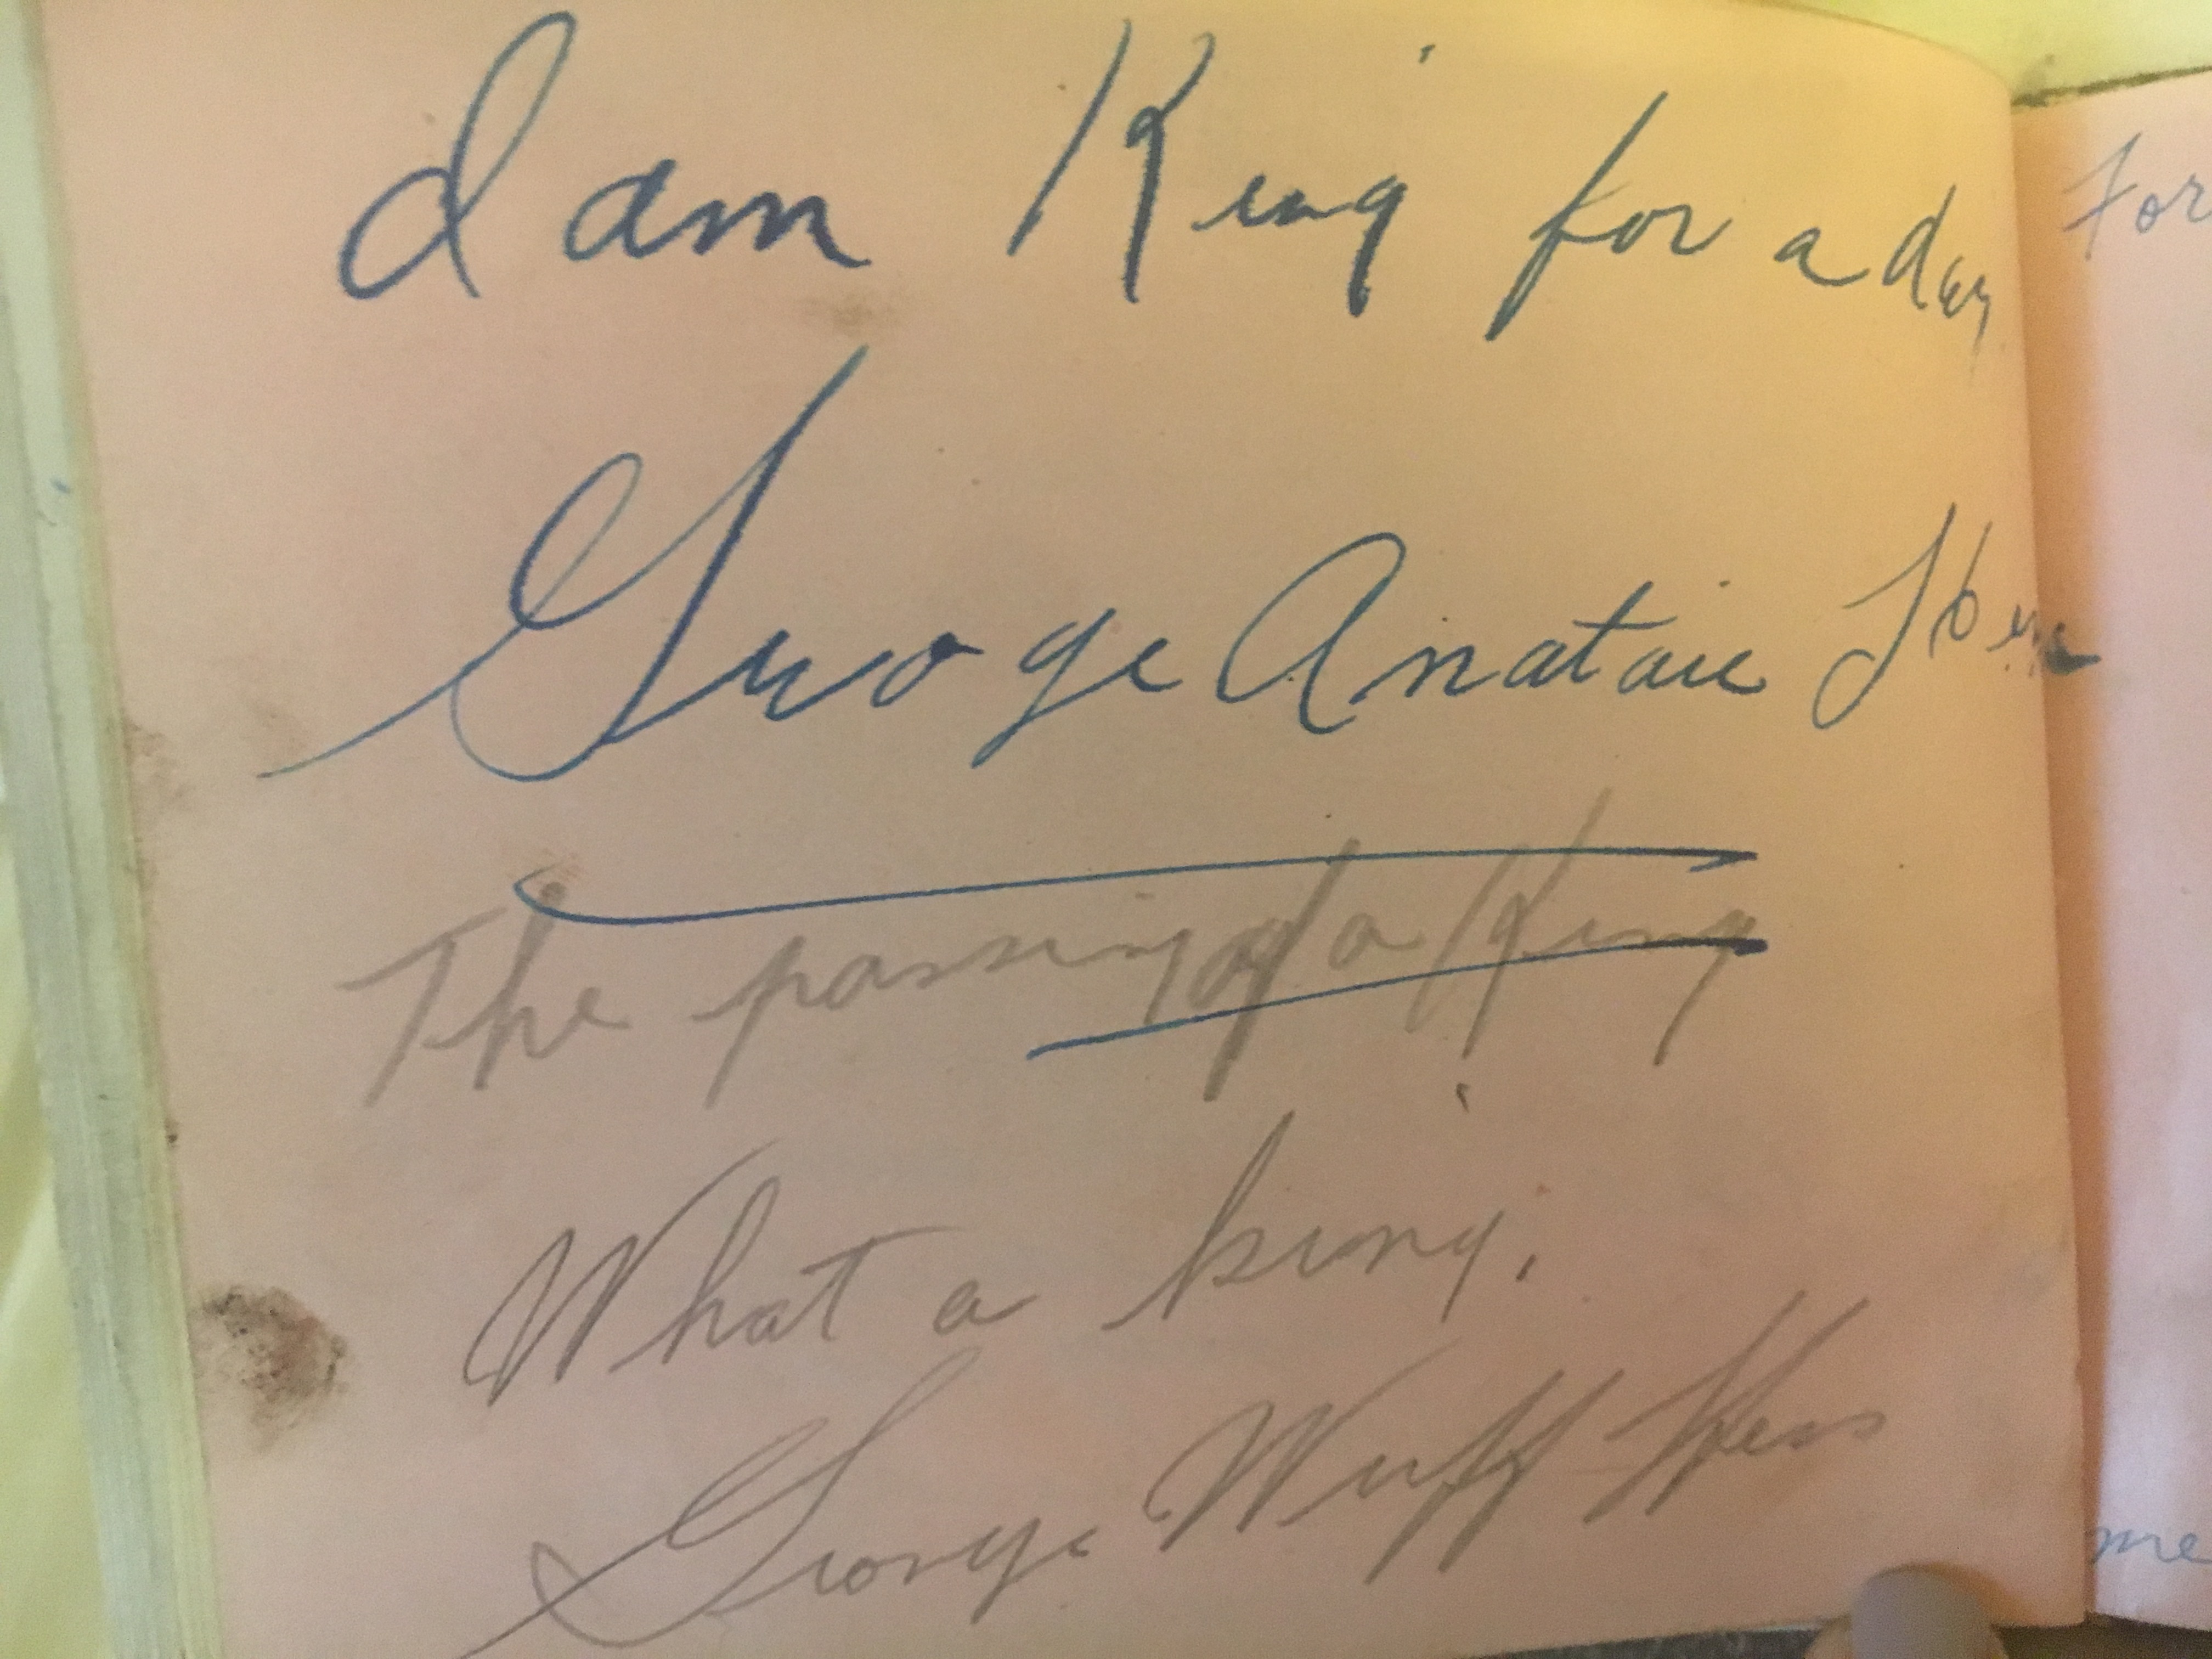 I am King for a day
George Anataie
The passing of a King
What a king.
George Wuff Hess
For
me